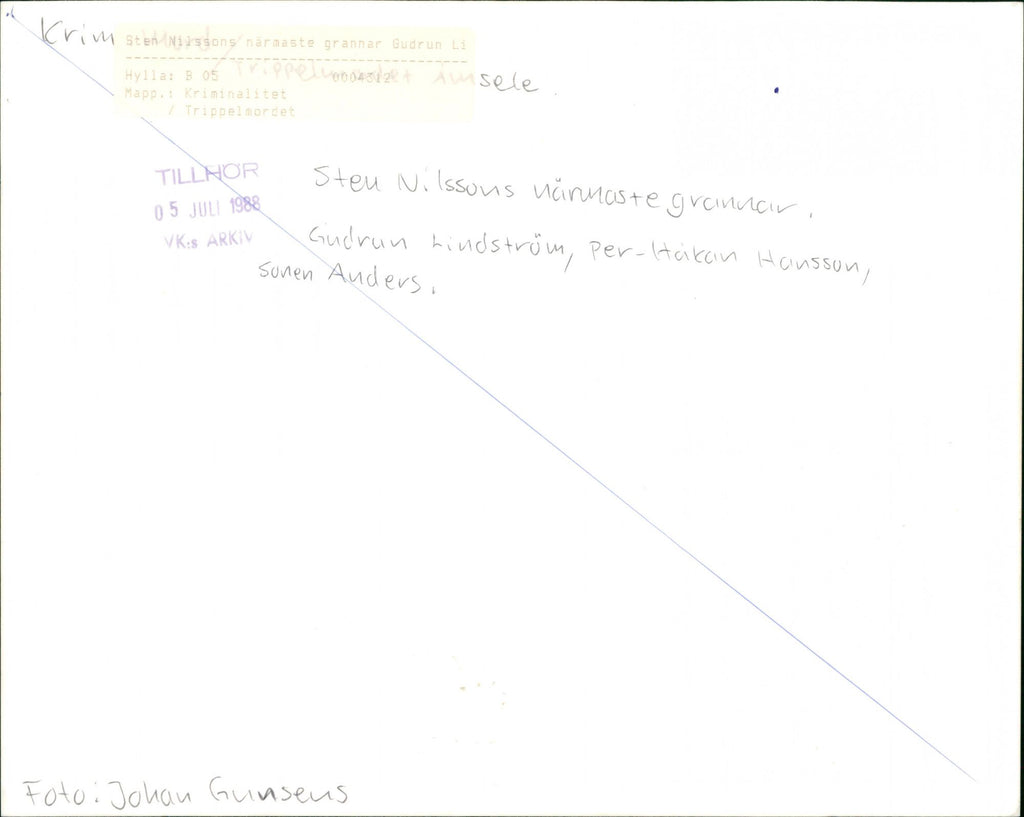 Krim Mord/
Trippelmordet Åmsele
Sten Nilssons närmaste grannar Gudrun Li
Hylla: B 05 0004312
Mapp.: Kriminalitet
/ Trippelmordet
TILLHÖR
05 JULI 1988
VK:s ARKIV
Sten Nilssons närmaste grannar.
Gudrun Lindström, Per-Håkan Hansson,
sonen Anders.
Foto: Johan Gunséus